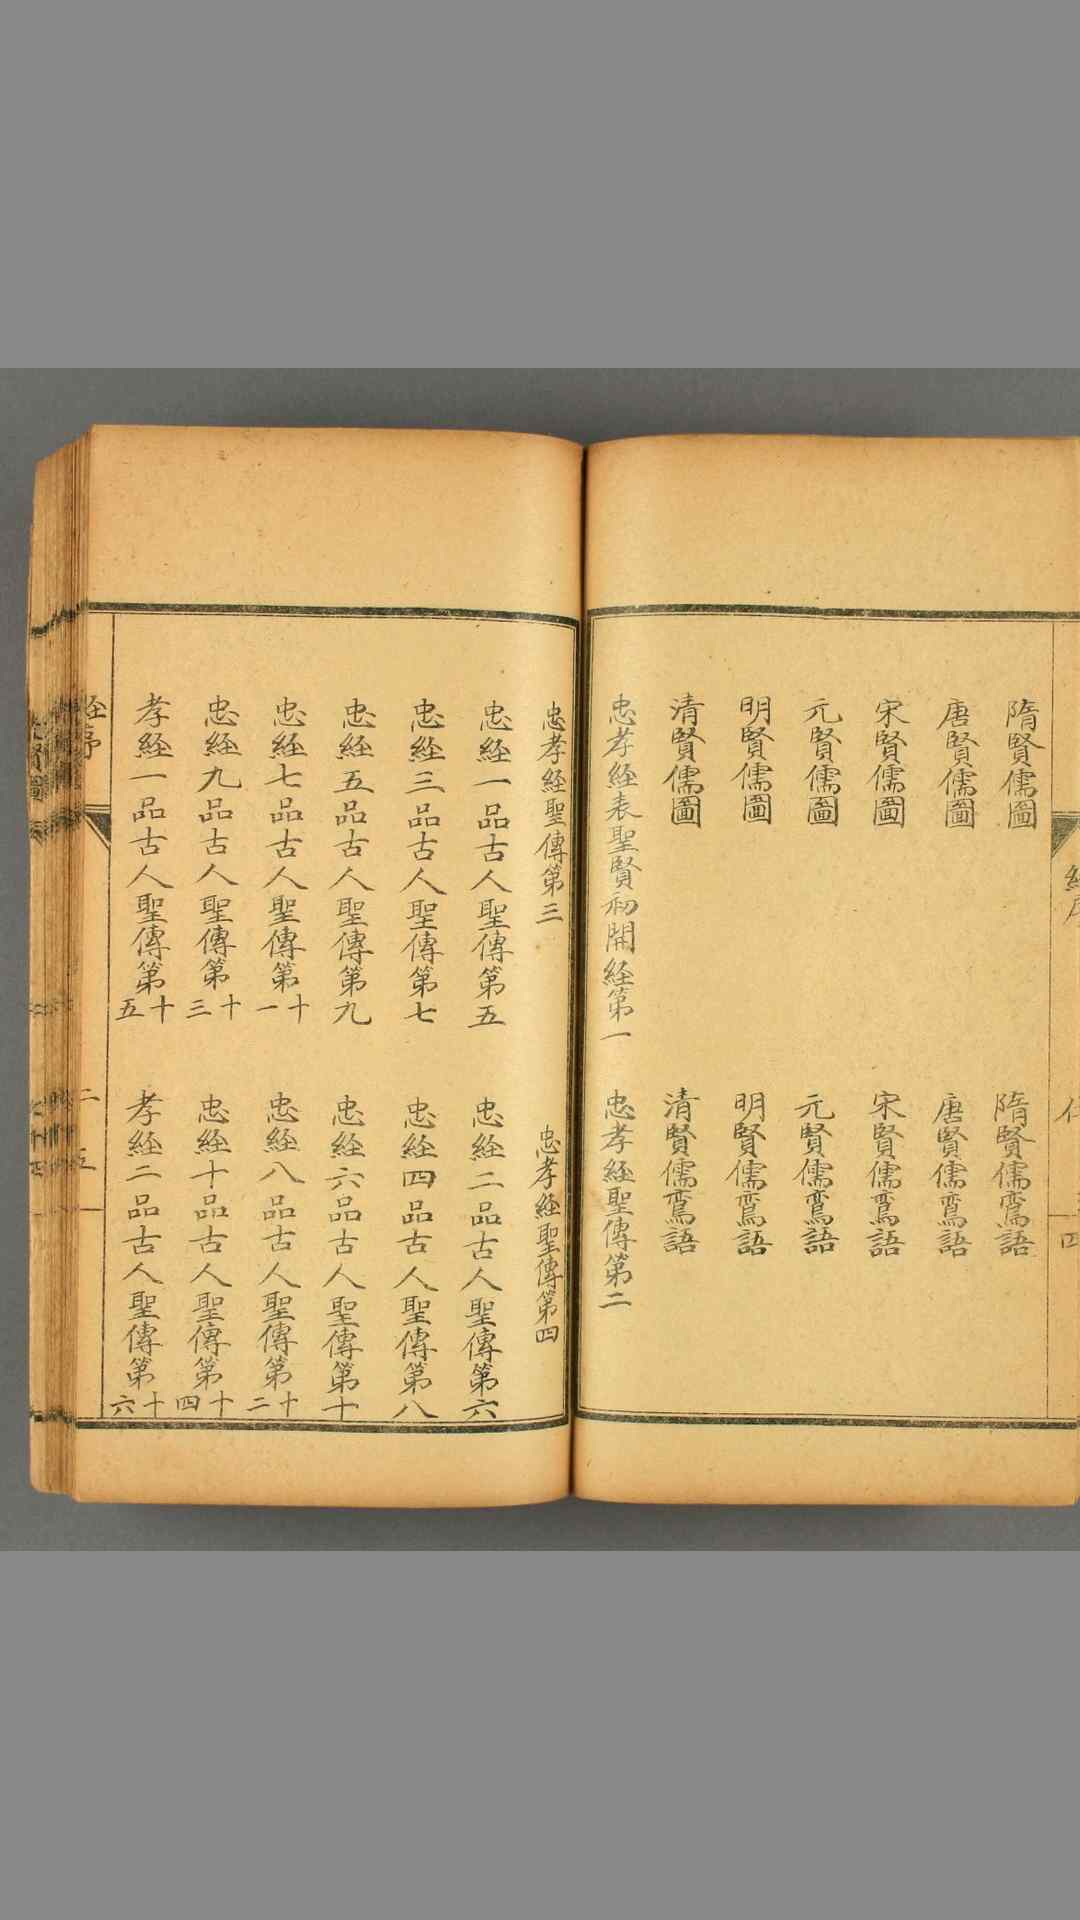 隋賢儒圖 隋賢儒鸞語
唐賢儒圖 唐賢儒鸞語
宋賢儒圖 宋賢儒鸞語
元賢儒圖 元賢儒鸞語
明賢儒圖 明賢儒鸞語
清賢儒圖 清賢儒鸞語
忠孝経表聖賢初開経第一 忠孝経聖傳第二
忠孝経聖傳第三 忠孝経聖傳第四
忠経一品古人聖傳第五 忠経二品古人聖傳第六
忠経三品古人聖傳第七 忠経四品古人聖傳第八
忠経五品古人聖傳第九 忠経六品古人聖傳第十
忠経七品古人聖傳第十一 忠経八品古人聖傳第十二
忠経九品古人聖傳第十三 忠経十品古人聖傳第十四
孝経一品古人聖傳第十五 孝経二品古人聖傳第十六